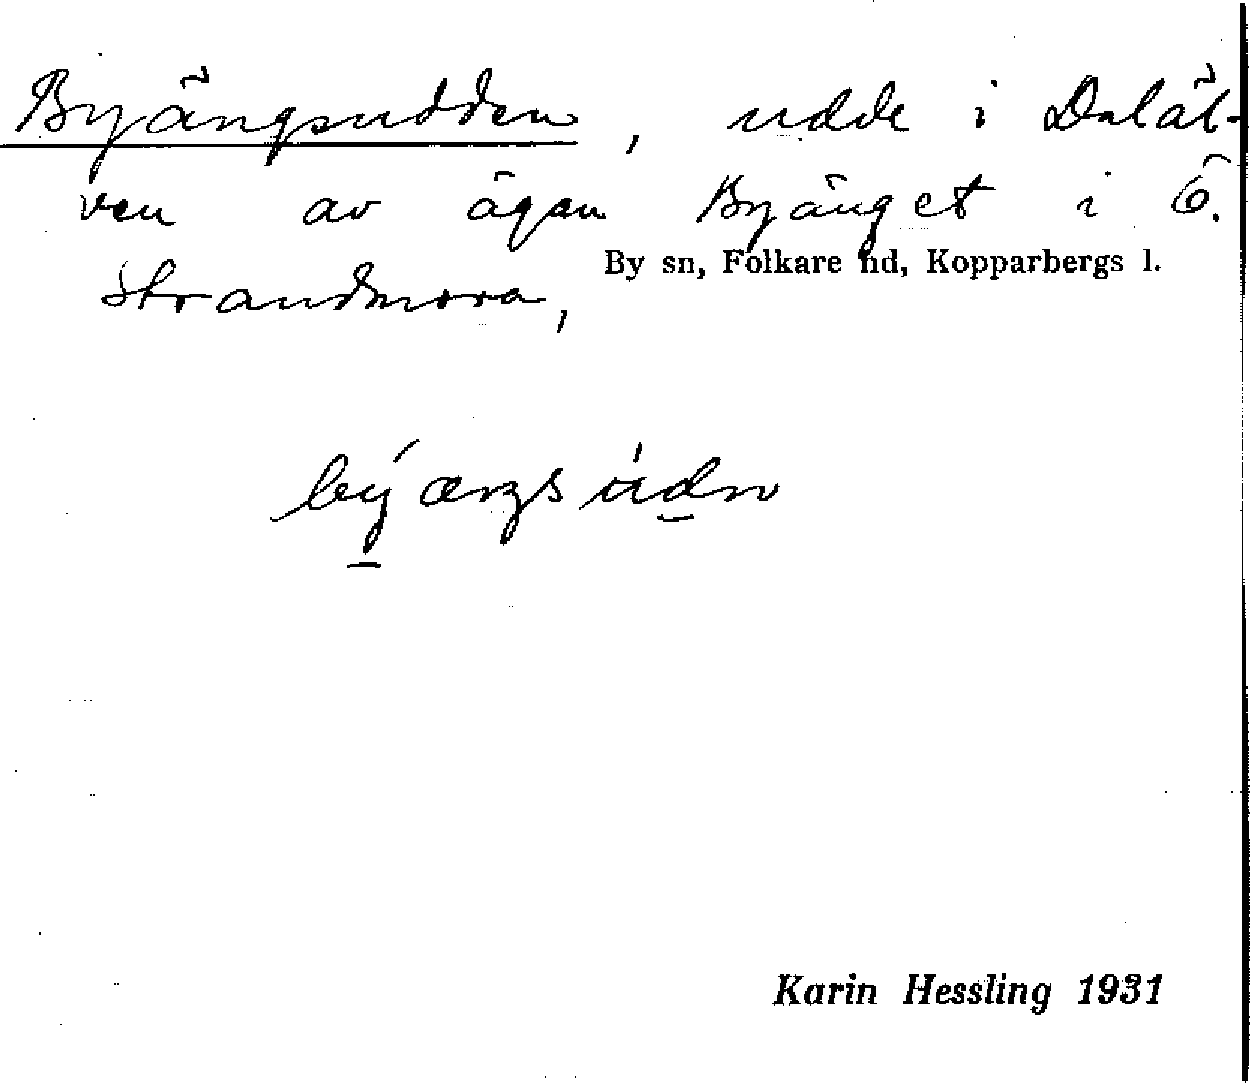 Byängsudden, udde i Daläl-
ven av ägan Byänget i Ö.
By sn, Folkare hd, Kopparbergs l.
Strandmora,
Karin Hessling 1931